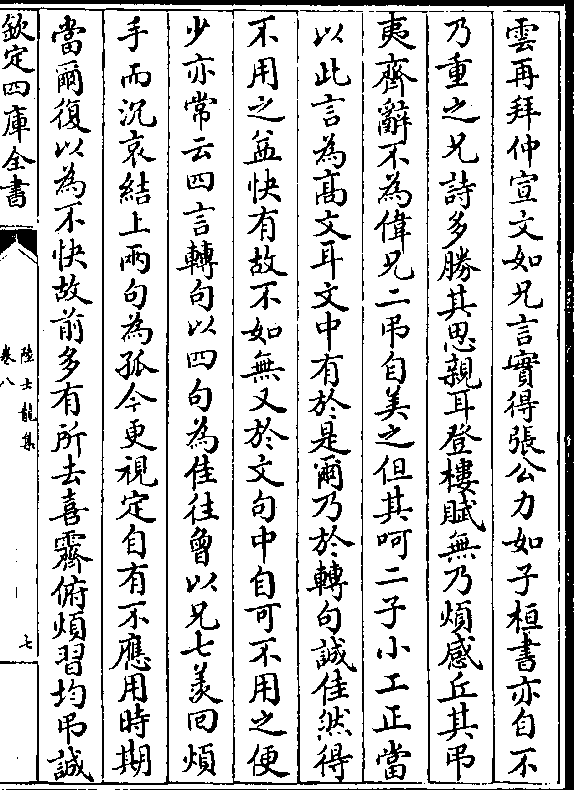 雲再拜仲宣文如兄言實得張公力如子桓書亦自不
乃重之兄詩多勝其思親耳登樓賦無乃煩感丘其弔
夷齊辭不為偉兄二弔自美之但其呵二子小工正當
以此言為高文耳文中有於是爾乃於轉句誠佳然得
不用之益快有故不如無又於文句中自可不用之便
少亦常云四言轉句以四句為佳往曾以兄七羨回煩
手而沉哀結上兩句為孤今更視定自有不應用時期
當爾復以為不快故前多有所去喜霽俯煩習均弔誠
欽定四庫全書
陸士龍集
卷八
七